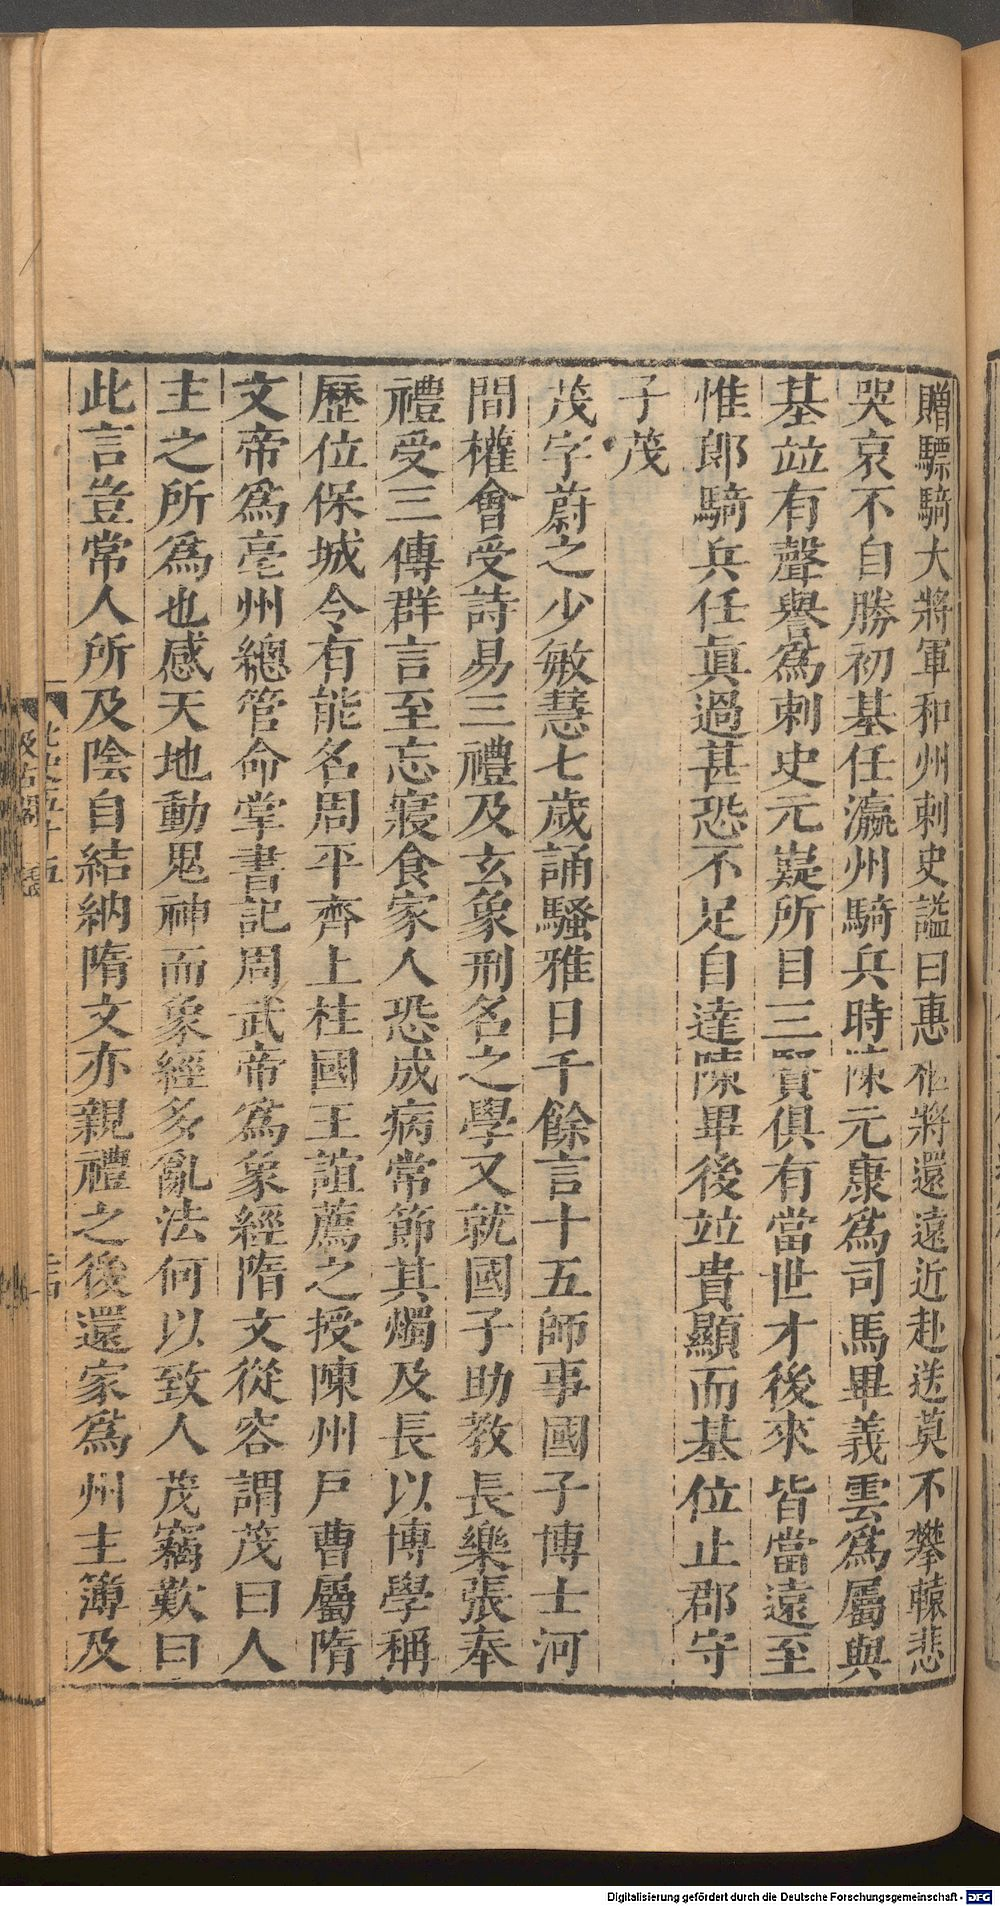 贈驃騎大將軍和州刺史謚曰惠柩將還遠近赴送莫不攀轅悲
哭哀不自勝初基任瀛州騎兵時陳元康為司馬畢義雲為屬與
基竝有聲譽為刺史元嶷所目三賢俱有當世才後來皆當遠至
惟郎騎兵任眞過甚恐不足自達陳畢後竝貴顯而基位止郡守
子茂
茂字蔚之少敏慧七歲誦騷雅日千餘言十五師事國子博士河
間權會受詩易三禮及玄象刑名之學又就國子助教長樂張奉
禮受三傳群言至忘寢食家人恐成病常節其燭及長以博學稱
歷位保城令有能名周平齊上柱國王誼薦之授陳州戸曹屬隋
文帝為亳州總管命掌書記周武帝為象經隋文從容謂茂曰人
主之所為也感天地動鬼神而象經多亂法何以致人茂竊歎曰
此言豈常人所及陰自結納隋文亦親禮之後還家為州主簿及
Digitalisierung gefördert durch die Deutsche Forschungsgemeinschaft - DFG